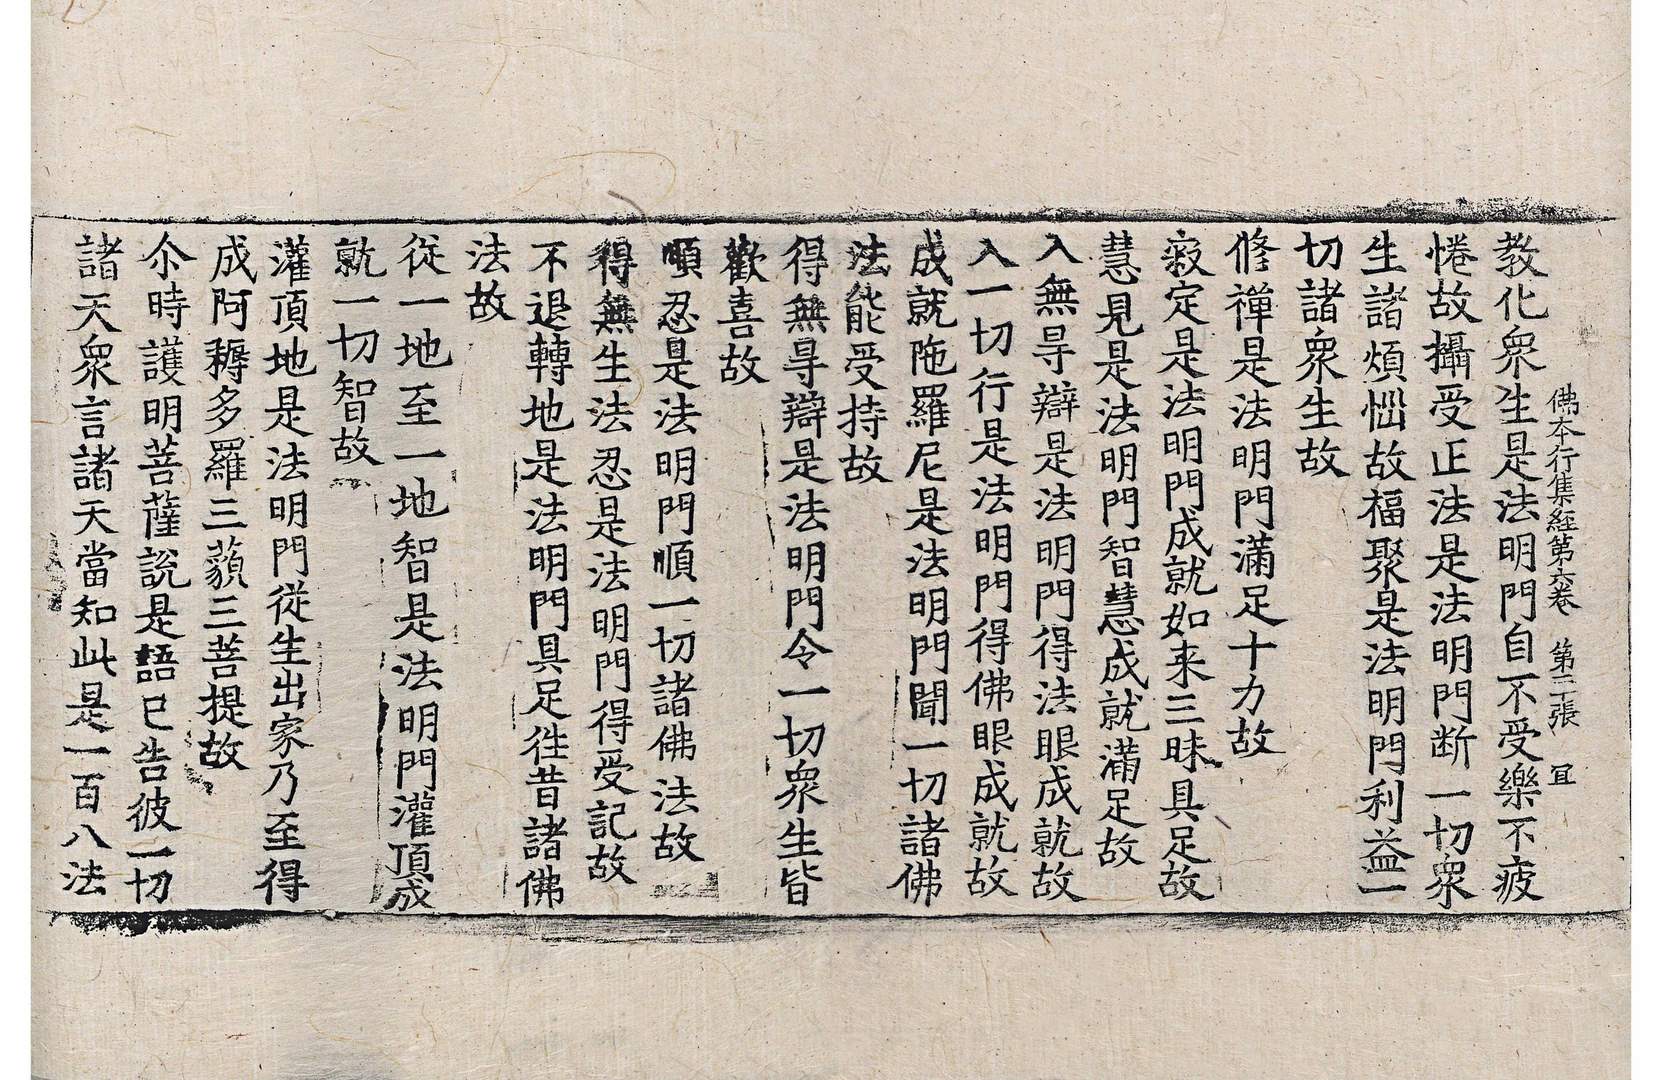 佛本行集經第六卷 第二張 冝
教化衆生是法明門自不受樂不疲
惓故攝受正法是法明門断一切衆
生諸煩惱故福聚是法明門利益一
切諸衆生故
修禪是法明門滿足十力故
㝡定是法明門成就如来三昧具足故
慧見是法明門智慧成就滿足故
入無㝵辯是法明門得法眼成就故
入一切行是法明門得佛眼成就故
成就陁羅尼是法明門聞一切諸佛
法能受持故
得無㝵辯是法明門令一切衆生皆
歡喜故
順忍是法明門順一切諸佛法故
得無生法忍是法明門得受記故
不退轉地是法明門具足徃昔諸佛
法故
從一地至一地智是法明門灌頂成
就一切智故
灌頂地是法明門從生出家乃至得
成阿耨多羅三藐三菩提故
尒時護明菩薩說是語已告彼一切
諸天衆言諸天當知此是一百八法